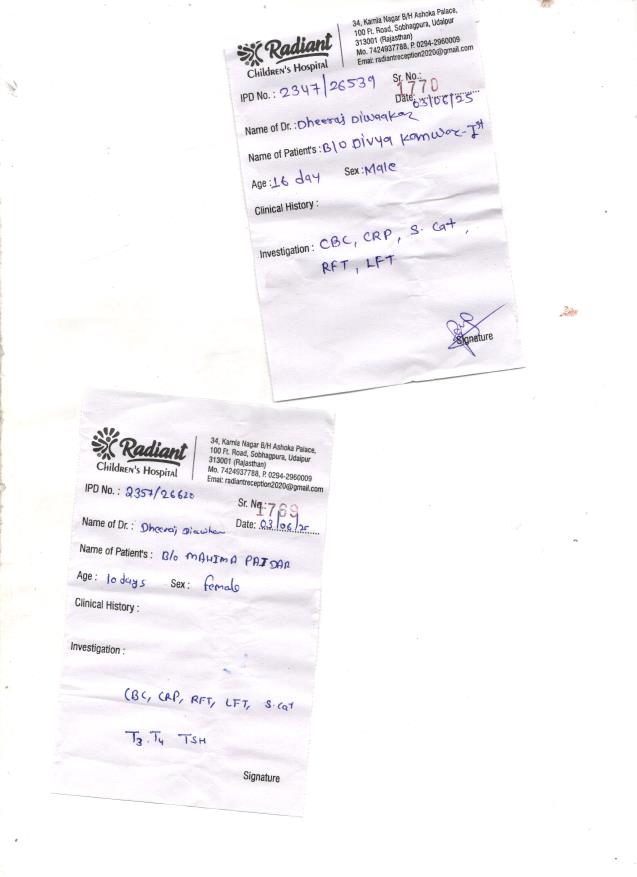 Radiant
Children's Hospital
34, Kamla Nagar B/H Ashoka Palace,
100 Ft. Road, Sobhagpura, Udaipur
313001 (Rajasthan)
Mo. 7424937788, P. 0294-2960009
Emai: radiantreception2020@gmail.com
IPD No. : 2347/26539
Sr. No.: 1770
Date: 03/06/25
Name of Dr. : Dheeraj Diwaakar
Name of Patient's : B/O Divya Kanwar-Ist
Age : 16 day Sex : Male
Clinical History :
Investigation : CBC, CRP, S. Cat,
RFT, LFT
Signature
Radiant
Children's Hospital
34, Kamla Nagar B/H Ashoka Palace,
100 Ft. Road, Sobhagpura, Udaipur
313001 (Rajasthan)
Mo. 7424937788, P. 0294-2960009
Emai: radiantreception2020@gmail.com
IPD No. : 2357/26620
Sr. No.: 1769
Name of Dr. : Dheeraj Date: 03/06/25
Name of Patient's : B/o MAHIMA PAIDAR
Age : 10 days Sex : female
Clinical History :
Investigation :
CBC, CRP, RFT, LFT, S.Cat
T3. T4 TSH
Signature